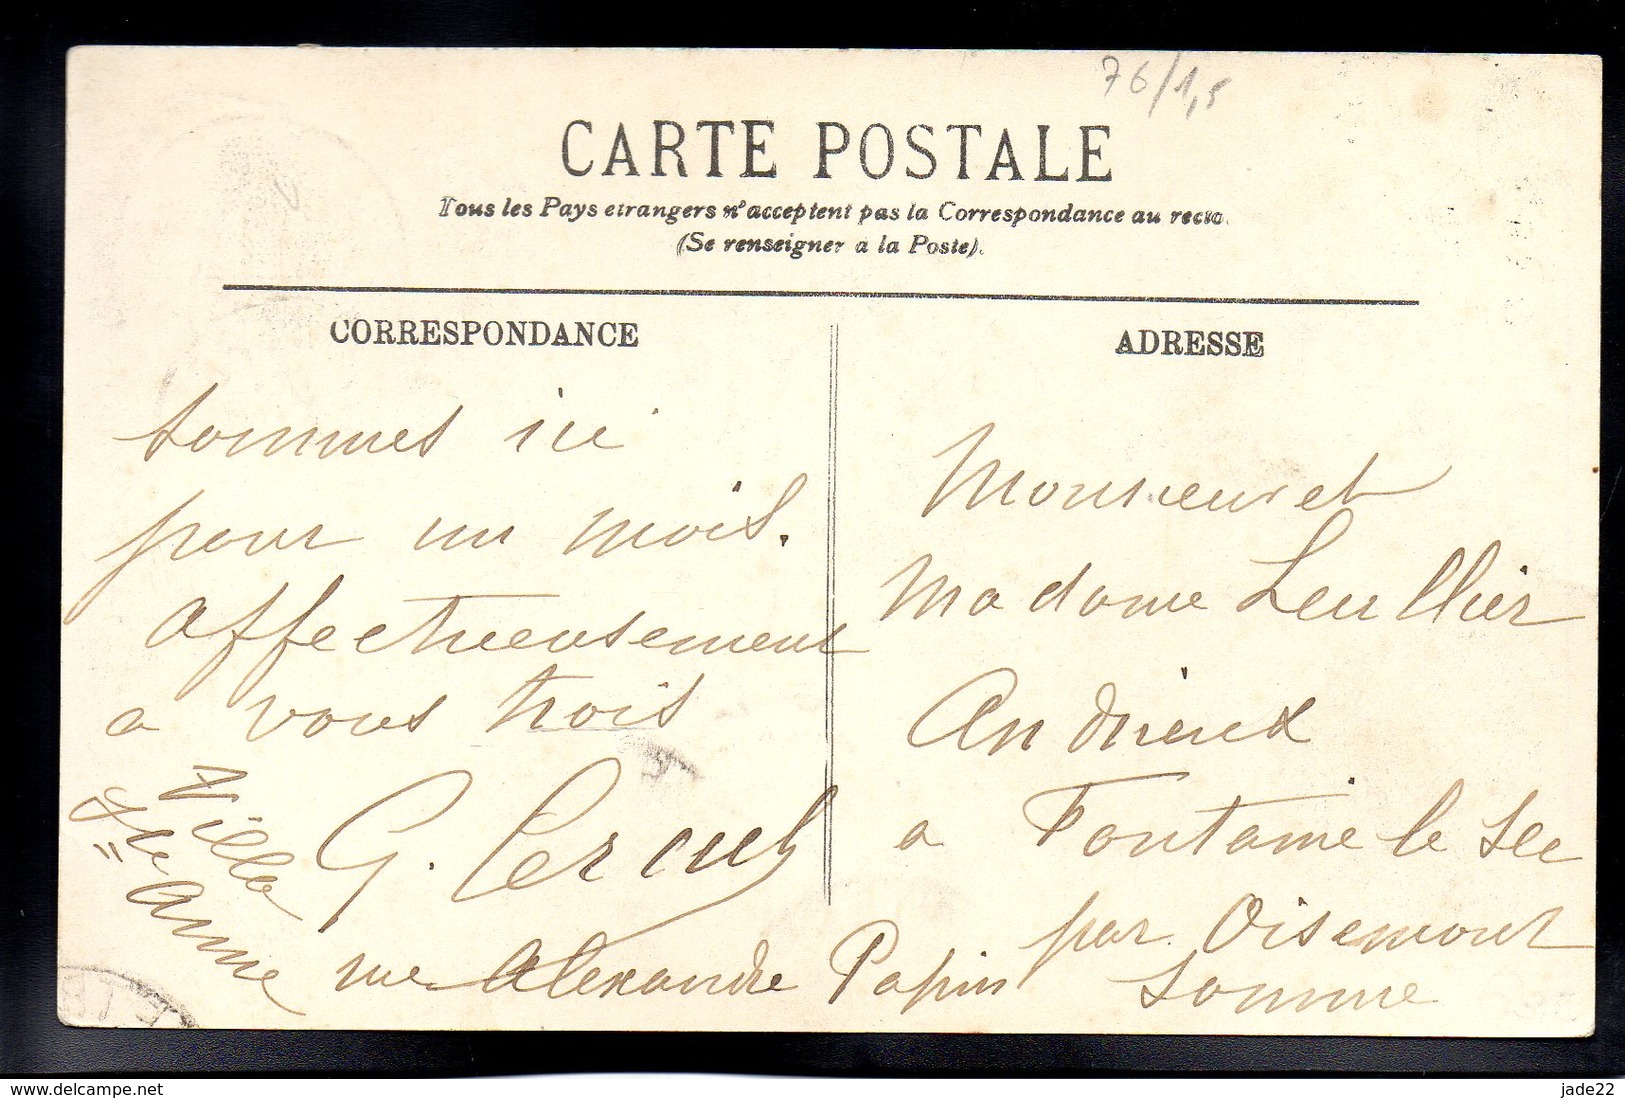 76/1,5
CARTE POSTALE
Tous les Pays etrangers n'acceptent pas la Correspondance au recto.
(Se renseigner à la Poste).
CORRESPONDANCE
sommes ici
pour un mois.
affectueusement
a vous trois
Villa
Ste Anne
rue Alexandre Papin
ADRESSE
Monsieur et
Madame Leullier
Andrieux
a Fontaine le Sec
par Oisemont
Somme
www.delcampe.net
jade22